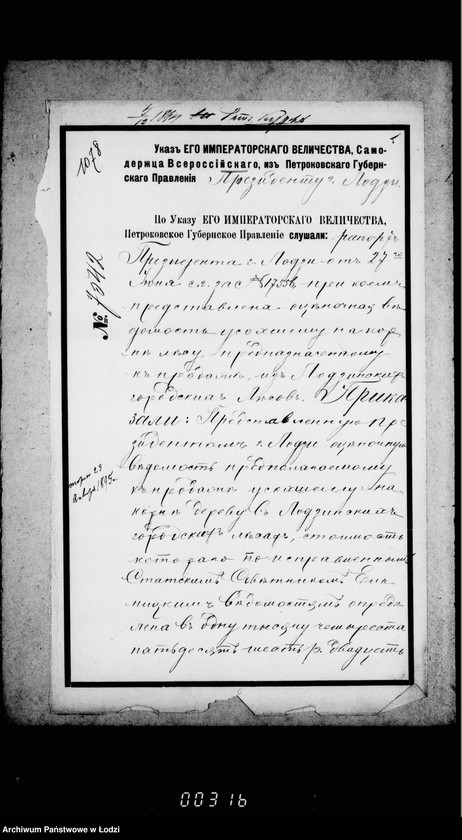 1078
Указъ ЕГО ИМПЕРАТОРСКАГО ВЕЛИЧЕСТВА, Само-
держца Всероссійскаго, изъ Петроковскаго Губерн-
скаго Правленія Президенту г. Лодзи.
По Указу ЕГО ИМПЕРАТОРСКАГО ВЕЛИЧЕСТВА,
Петроковское Губернское Правленіе слушали: рапортъ
Президента г. Лодзи отъ 27го
Іюня с.г. за с №17556 при коемъ
представлена оцѣночная вѣ-
домость усохшему на кор-
нѣ лѣсу, предназначенному
къ продажѣ, изъ Лодзинскихъ
городскихъ Лѣсовъ. Прика
зали: Представленную Пре-
зидентомъ г. Лодзи оцѣночную
вѣдомость предполагаемому
къ продажѣ усохшему на
корнѣ дереву въ Лодзинскихъ
городскихъ лѣсахъ, стоимость
котораго по исправленнымъ
Статскимъ Совѣтникомъ
вѣдомостямъ опредѣ-
лена въ одну тысячу четыреста
пятьдесятъ шесть р. двадцать
№
23
1895г.
00316
Archiwum Państwowe w Łodzi